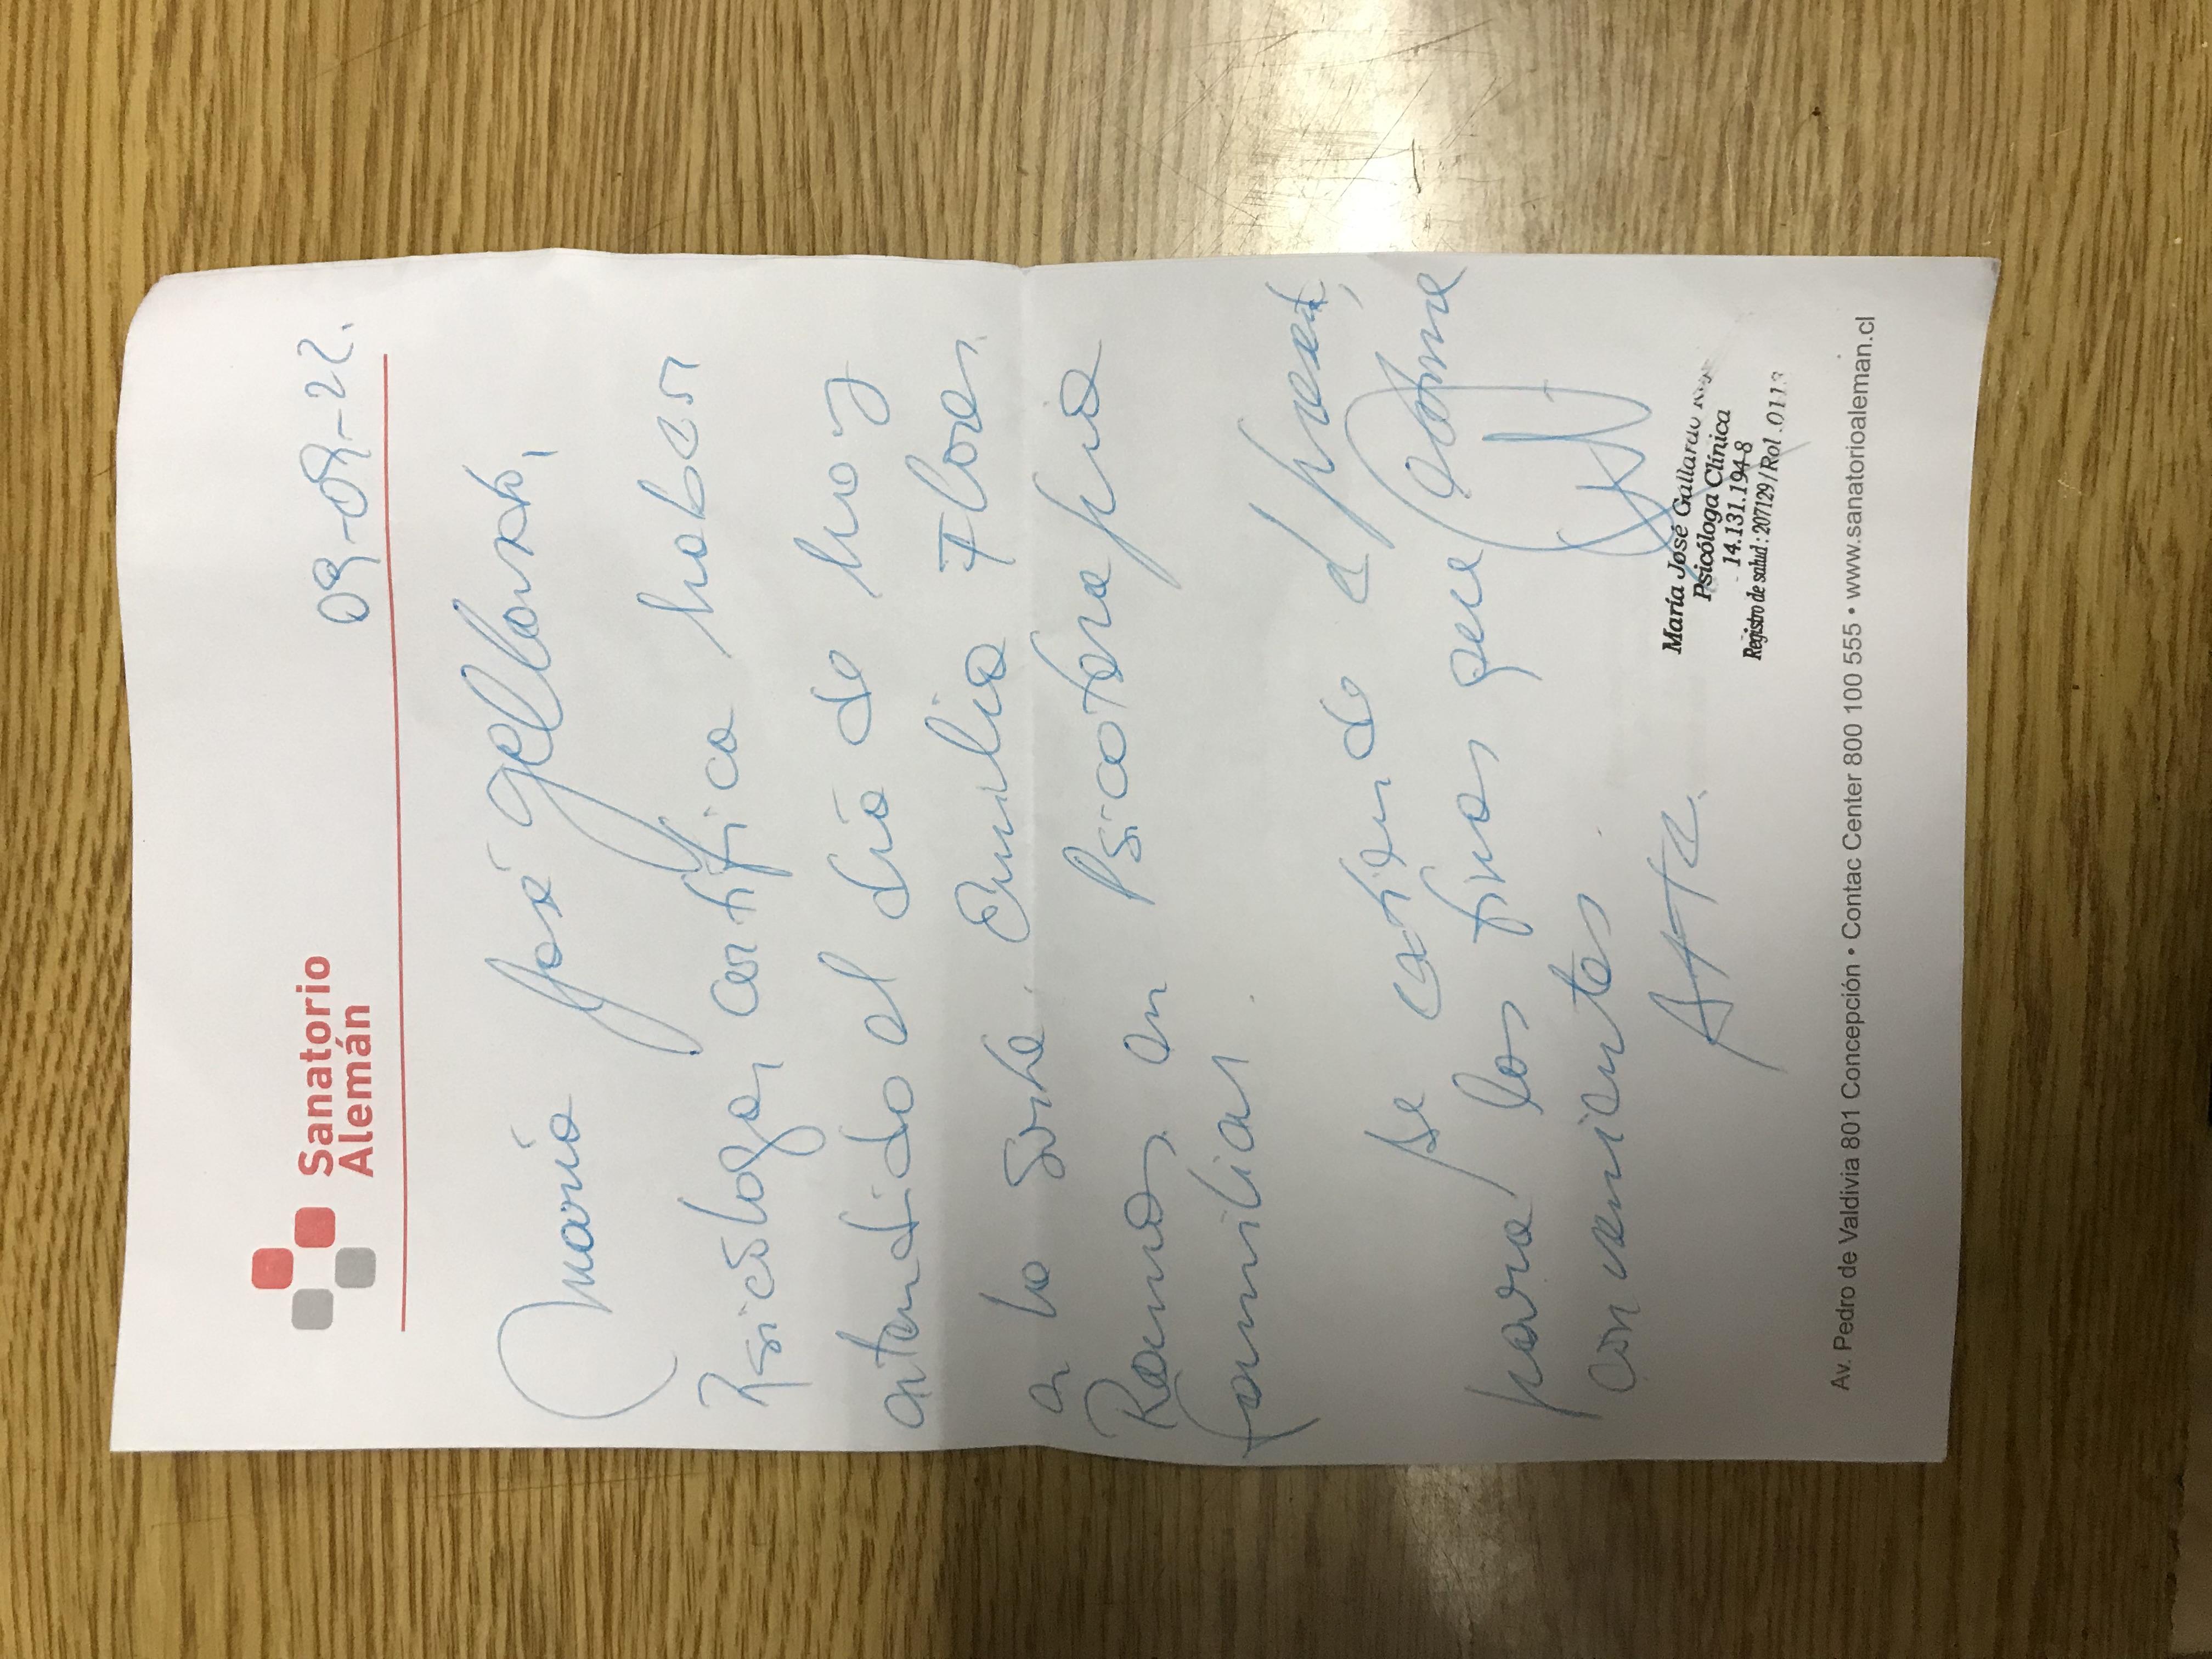 Sanatorio
Alemán
09-08-22.
María José Gallardo,
Psicóloga, certifica haber
atendido el día de hoy
a la Srta. Emilia Flores
Ramos en Psicoterapia
familiar.
Se extiende el present,
para los fines que estime
convenientes.
Atte.
María José Gallardo
Psicóloga Clínica
14.131.194-8
Registro de salud: 207129/Rol .0113
Av. Pedro de Valdivia 801 Concepción • Contac Center 800 100 555 • www.sanatorioaleman.cl